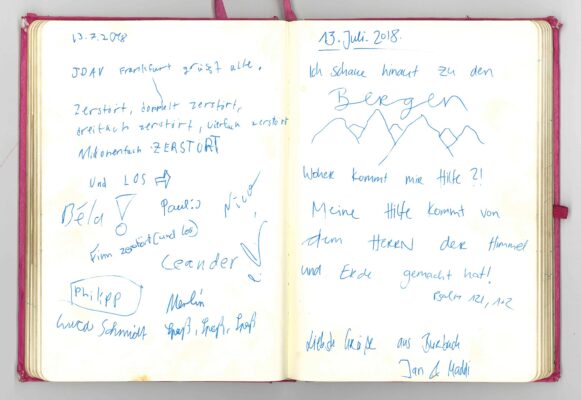 13.7.2018
JDAV Frankfurt grüßt alle.
Zerstört, doppelt zerstört,
dreifach zerstört, vierfach zerstört
Millionenfach ZERSTÖRT
Und LOS ⇒
Béla !
Paulis
Nico
Finn zerstört (und los)
Leander
Philipp
Merlin
Schmidt
Spaß, Spaß, Spaß
13. Juli. 2018.
Ich schaue hinauf zu den
Bergen
Woher kommt mir Hilfe ?!
Meine Hilfe kommt von
dem HERRN der Himmel
und Erde gemacht hat!
Psalm 121, 1+2
Liebste Grüße aus Burbach
Jan & Maddi